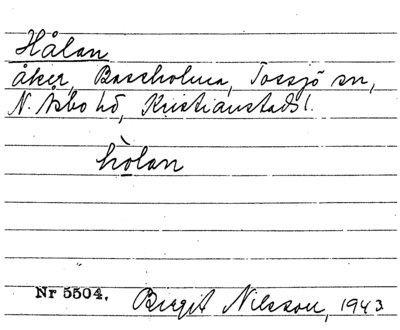 Hålan
åker, Boseholma, Tossjö sn,
N. Åsbo hd, Kristianstads l.
hòlan
Nr 5504. Birgit Nilsson, 1943